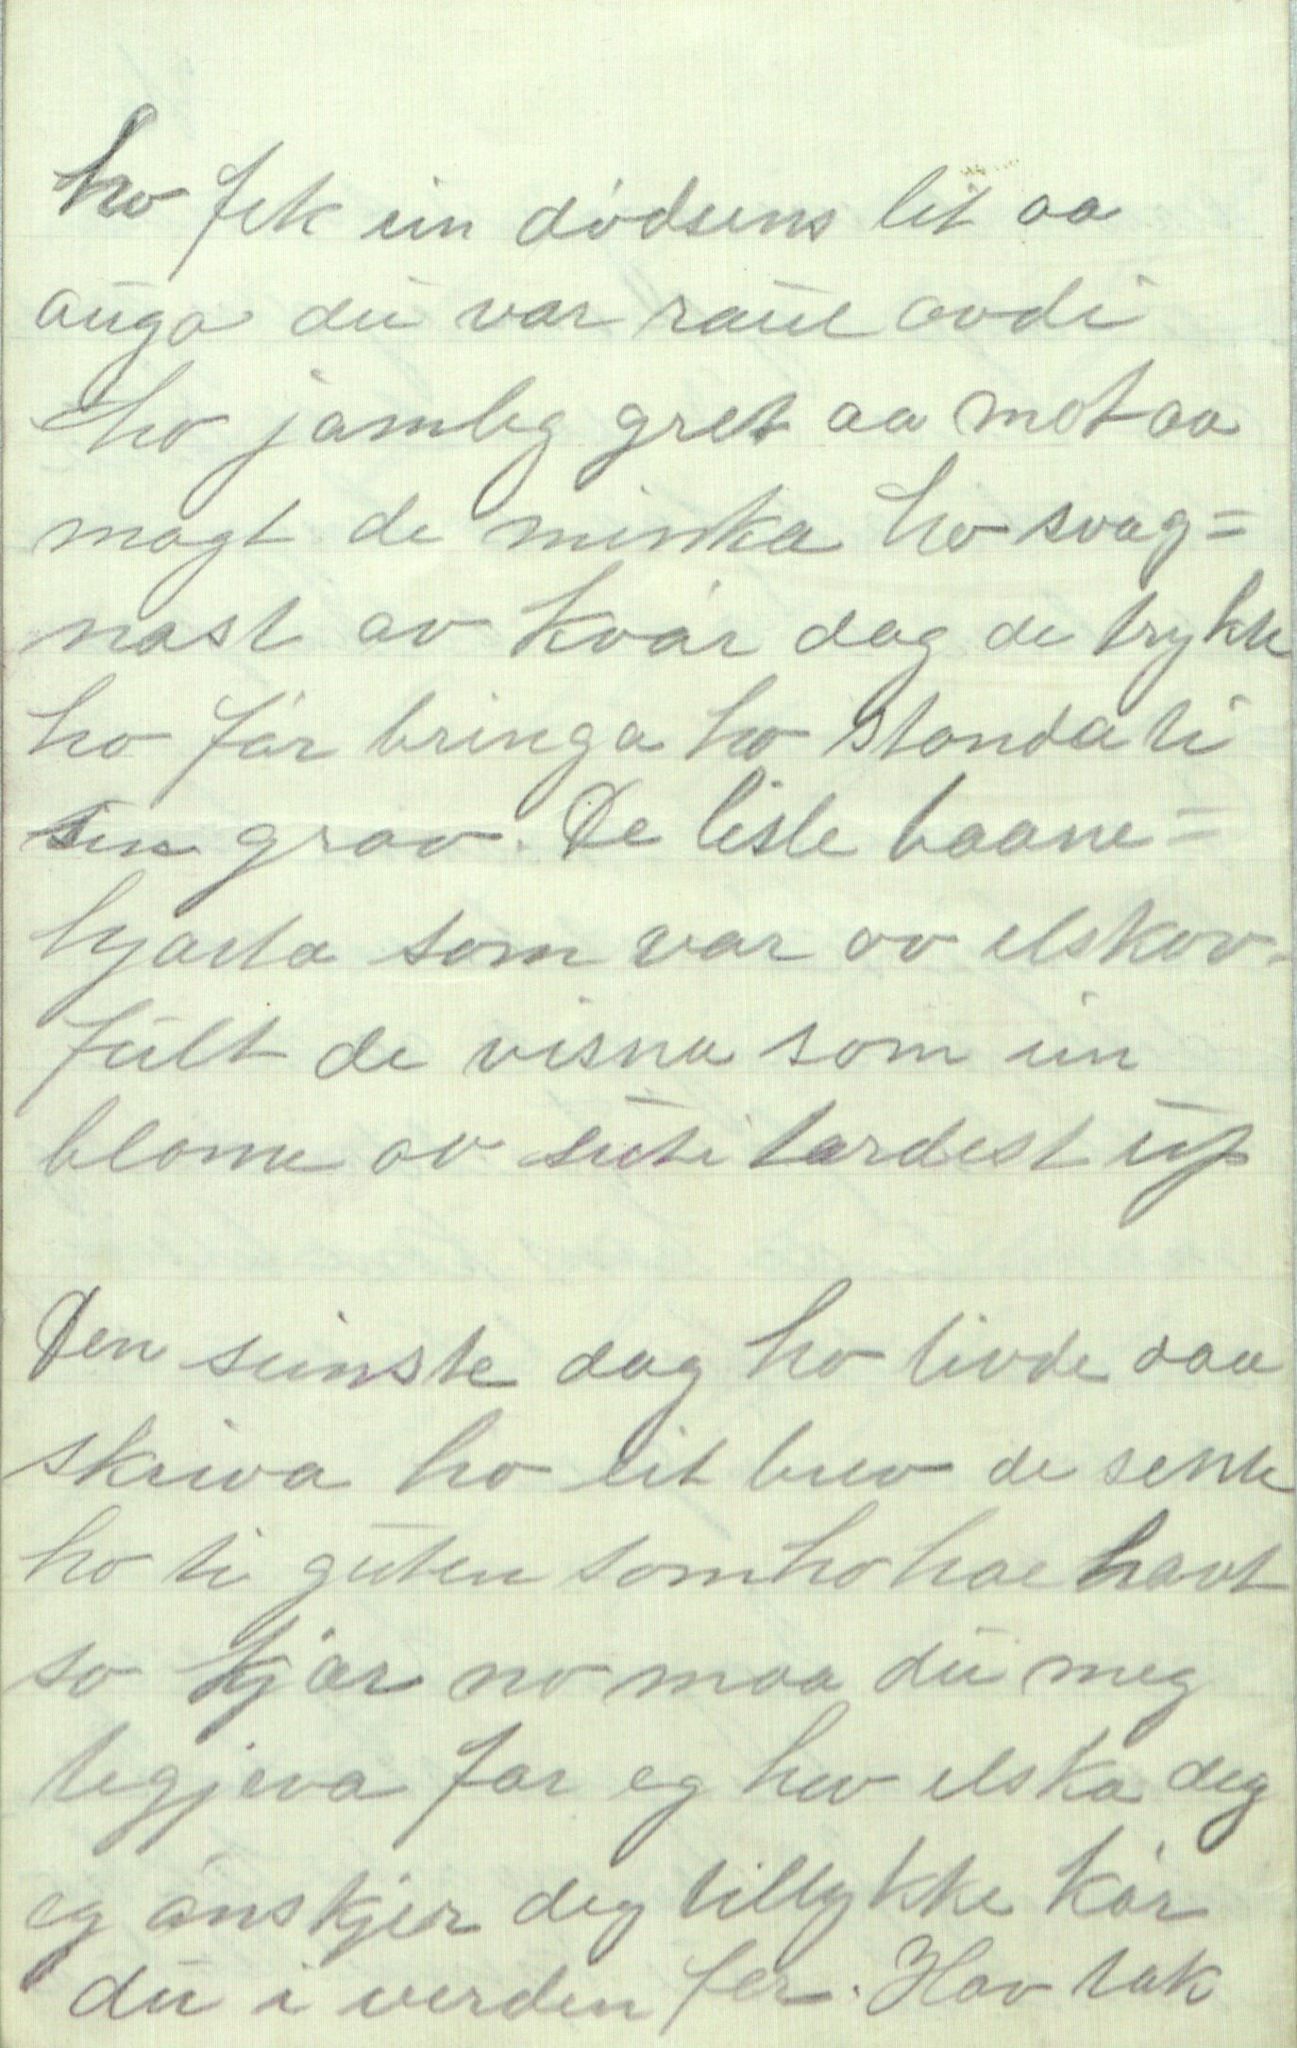 ho fek ein dødsens lit aa
auga dei var raue avdi
ho jamleg gret aa mot aa
magt de minka ho svag=
nast av kvár dag de trykte
ho fár bringa ho stonda ti
sin grav. De lisle baane=
hjarta som var av elskov-
fult de visna som ein
blome av suti tardest up

Den seinste dag ho livde daa
skriva ho eit brev de sente
ho ti guten som ho hae havt
so kjær no maa du meg
tegjeva far eg hev elska deg
eg ánskjer deg tillykke kár
du i verden fer. Hav tak